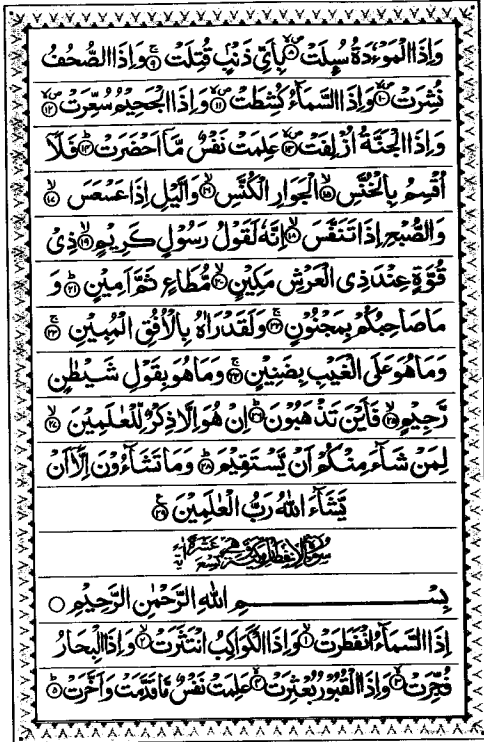 وَاِذَا الْمَوْءٗدَةُ سُىِٕلَتْ ۪ۙ﴿۸﴾ بِاَیِّ ذَنْۢبٍ قُتِلَتْ ۚ﴿۹﴾ وَاِذَا الصُّحُفُ
نُشِرَتْ ۪ۙ﴿۱۰﴾ وَاِذَا السَّمَآءُ كُشِطَتْ ۪ۙ﴿۱۱﴾ وَاِذَا الْجَحِیْمُ سُعِّرَتْ ۪ۙ﴿۱۲﴾
وَاِذَا الْجَنَّةُ اُزْلِفَتْ ۪ۙ﴿۱۳﴾ عَلِمَتْ نَفْسٌ مَّاۤ اَحْضَرَتْ ؕ﴿۱۴﴾ فَلَاۤ
اُقْسِمُ بِالْخُنَّسِ ۙ﴿۱۵﴾ الْجَوَارِ الْكُنَّسِ ۙ﴿۱۶﴾ وَالَّیْلِ اِذَا عَسْعَسَ ۙ﴿۱۷﴾
وَالصُّبْحِ اِذَا تَنَفَّسَ ۙ﴿۱۸﴾ اِنَّهٗ لَقَوْلُ رَسُوْلٍ كَرِیْمٍ ۙ﴿۱۹﴾ ذِیْ
قُوَّةٍ عِنْدَ ذِی الْعَرْشِ مَكِیْنٍ ۙ﴿۲۰﴾ مُّطَاعٍ ثَمَّ اَمِیْنٍ ؕ﴿۲۱﴾ وَ
مَا صَاحِبُكُمْ بِمَجْنُوْنٍ ۚ﴿۲۲﴾ وَلَقَدْ رَاٰهُ بِالْاُفُقِ الْمُبِیْنِ ۚ﴿۲۳﴾
وَمَا هُوَ عَلَی الْغَیْبِ بِضَنِیْنٍ ۚ﴿۲۴﴾ وَمَا هُوَ بِقَوْلِ شَیْطٰنٍ
رَّجِیْمٍ ۙ﴿۲۵﴾ فَاَیْنَ تَذْهَبُوْنَ ؕ﴿۲۶﴾ اِنْ هُوَ اِلَّا ذِكْرٌ لِّلْعٰلَمِیْنَ ۙ﴿۲۷﴾
لِمَنْ شَآءَ مِنْكُمْ اَنْ یَّسْتَقِیْمَ ؕ﴿۲۸﴾ وَمَا تَشَآءُوْنَ اِلَّاۤ اَنْ
یَّشَآءَ اللّٰهُ رَبُّ الْعٰلَمِیْنَ ﴿۲۹﴾
سُوْرَةُ الْاِنْفِطَارِ مَكِّیَّةٌ وَّهِیَ تِسْعَ عَشْرَةَ اٰیَةً
بِسْمِ اللّٰهِ الرَّحْمٰنِ الرَّحِیْمِ ○
اِذَا السَّمَآءُ انْفَطَرَتْ ۙ﴿۱﴾ وَاِذَا الْكَوَاكِبُ انْتَثَرَتْ ۙ﴿۲﴾ وَاِذَا الْبِحَارُ
فُجِّرَتْ ۙ﴿۳﴾ وَاِذَا الْقُبُوْرُ بُعْثِرَتْ ۙ﴿۴﴾ عَلِمَتْ نَفْسٌ مَّا قَدَّمَتْ وَاَخَّرَتْ ؕ﴿۵﴾